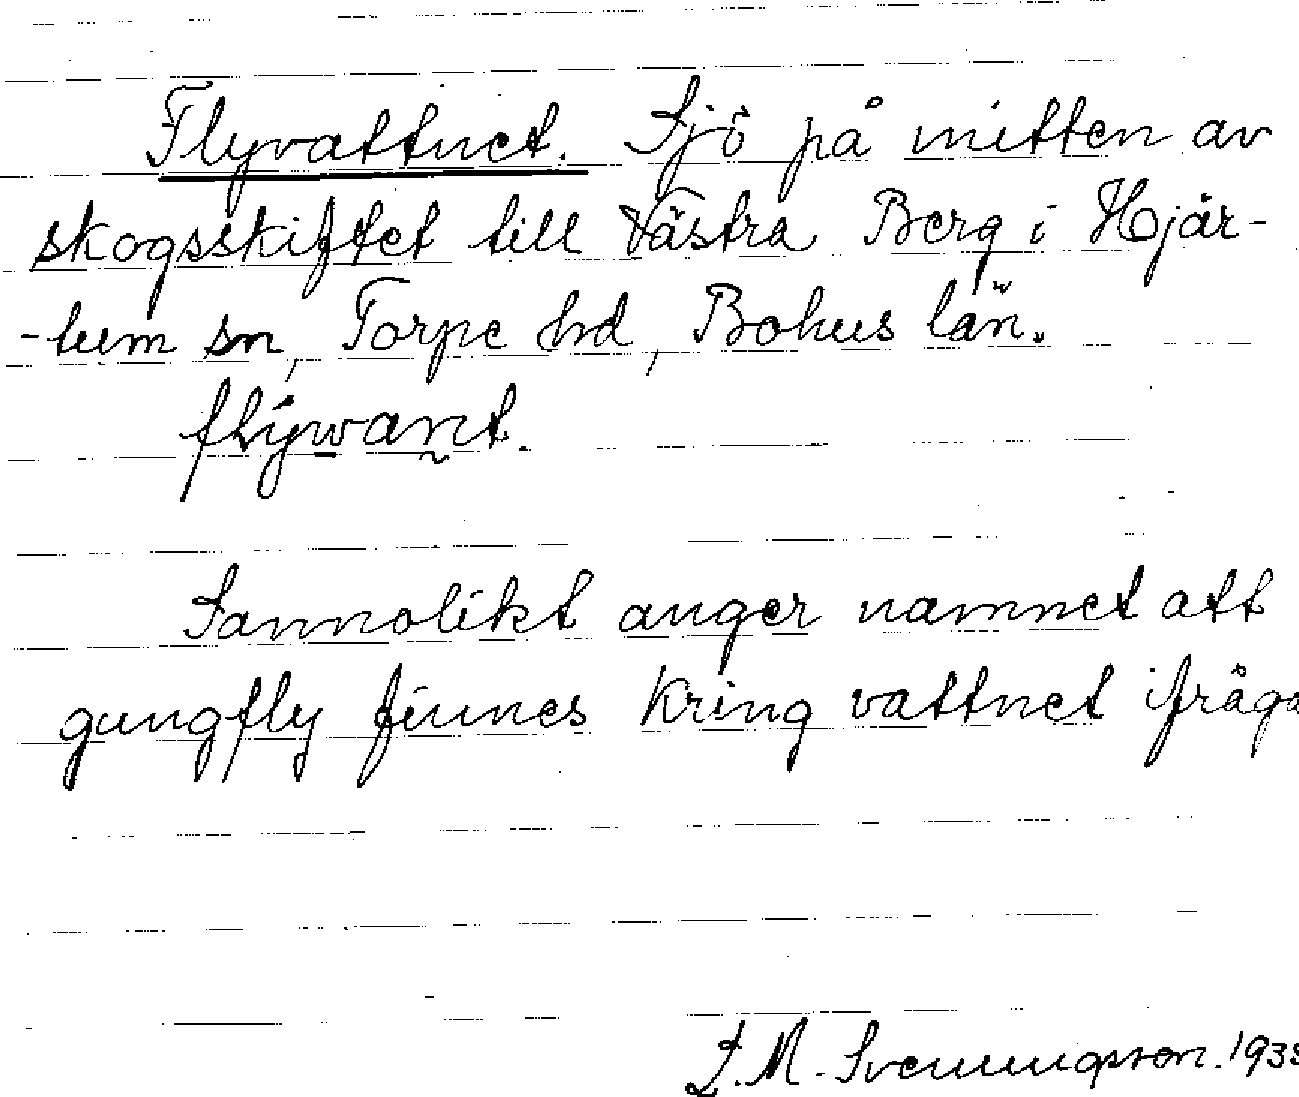 Flyvattnet. Sjö på mitten av
skogsskiftet till Västra Berg i Hjär-
-tum sn, Torpe hd, Bohus län.
flýwant.
Sannolikt anger namnet att
gungfly finnes kring vattnet ifråga
M. Svenningson.